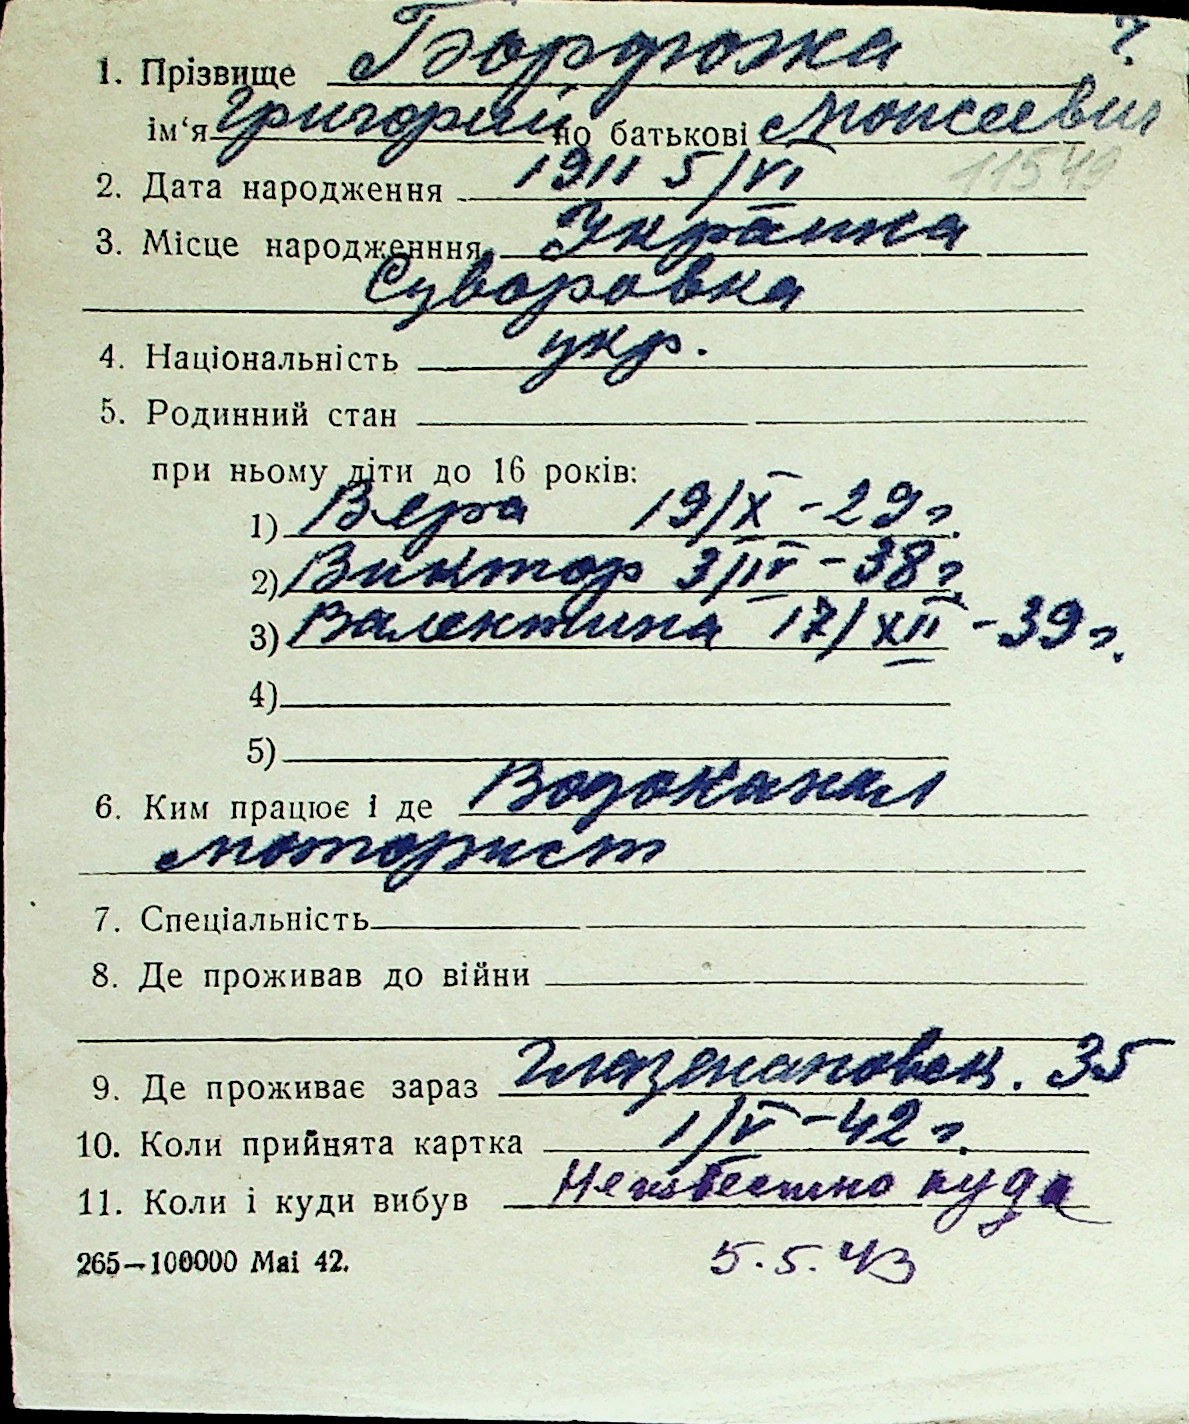 7.
1. Прізвище Бордюжа
ім‘я Григорий по батькові Моисеевич
11549
2. Дата народження 1911 5/VI
3. Місце народженння Украина
Суворовка
4. Національність укр.
5. Родинний стан
при ньому діти до 16 років:
1) Вера 19/X - 29 г.
2) Виктор - 38 г.
3) Валентина 17/XII - 39 г.
4)
5)
6. Ким працює і де Водоканал
моторист
7. Спеціальність
8. Де проживав до війни
9. Де проживає зараз 35
10. Коли прийнята картка 1/V - 42 г.
11. Коли і куди вибув Неизвестно куда
265—100000 Mai 42.
5.5.43